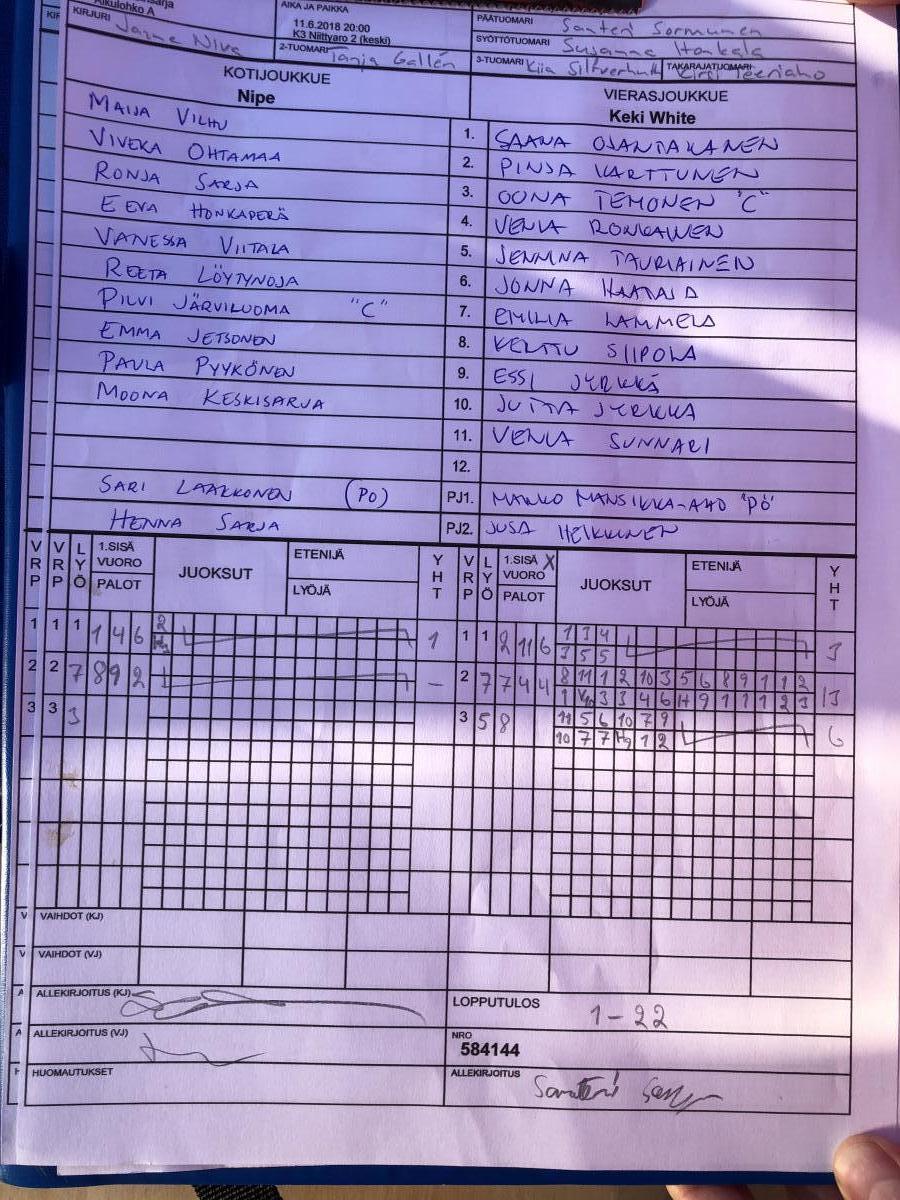 Alkulohko A
KIRJURI
AIKA JA PAIKKA
11.6.2018 20:00
K3 Niittyaro 2 (keski)
PÄÄTUOMARI Santeri Sormunen
SYÖTTÖTUOMARI Susanna Honkala
2-TUOMARI Tanja Gallén
3-TUOMARI Kiia
TAKARAJATUOMARI
KOTIJOUKKUE
Nipe
VIERASJOUKKUE
Keki White
MAIJA VILHU 1. SAANA OJANTAKANEN
VIVEKA OHTAMAA 2. PINJA KARTTUNEN
RONJA SARJA 3. OONA TEMONEN "C"
EEVA HONKAPERÄ 4. VENLA RONKAINEN
VANESSA VIITALA 5. JEMINA TAURIAINEN
REETA LÖYTYNOJA 6. JONNA HAATAJA
PILVI JÄRVILUOMA "C" 7. EMILIA LAMMELA
EMMA JETSONEN 8. VELTTU SIIPOLA
PAULA PYYKÖNEN 9. ESSI JYRKKÄ
MOONA KESKISARJA 10. JUTTA JYRKKÄ
11. VENLA SUNNARI
12.
SARI LAAKKONEN (PO) PJ1. MANSIKKA-AHO
HENNA SARJA PJ2. JUSA HEIKKINEN
VRP VRP LYÖ 1.SISÄ VUORO PALOT JUOKSUT ETENIJÄ LYÖJÄ YHT VRP LYÖ 1.SISÄ VUORO X PALOT JUOKSUT ETENIJÄ LYÖJÄ YHT
1 1 1 1 4 6 2 1 1 1 2 11 6 1 3 4 3
3 5 5
2 2 7 8 9 2 – 2 7 7 4 4 8 11 1 2 10 3 5 6 8 9 1 1 2 13
3 3 3 3 5 8 11 5 6 10 7 9 6
VAIHDOT (KJ)
VAIHDOT (VJ)
ALLEKIRJOITUS (KJ)
LOPPUTULOS 1-22
ALLEKIRJOITUS (VJ)
NRO
584144
HUOMAUTUKSET
ALLEKIRJOITUS Santeri